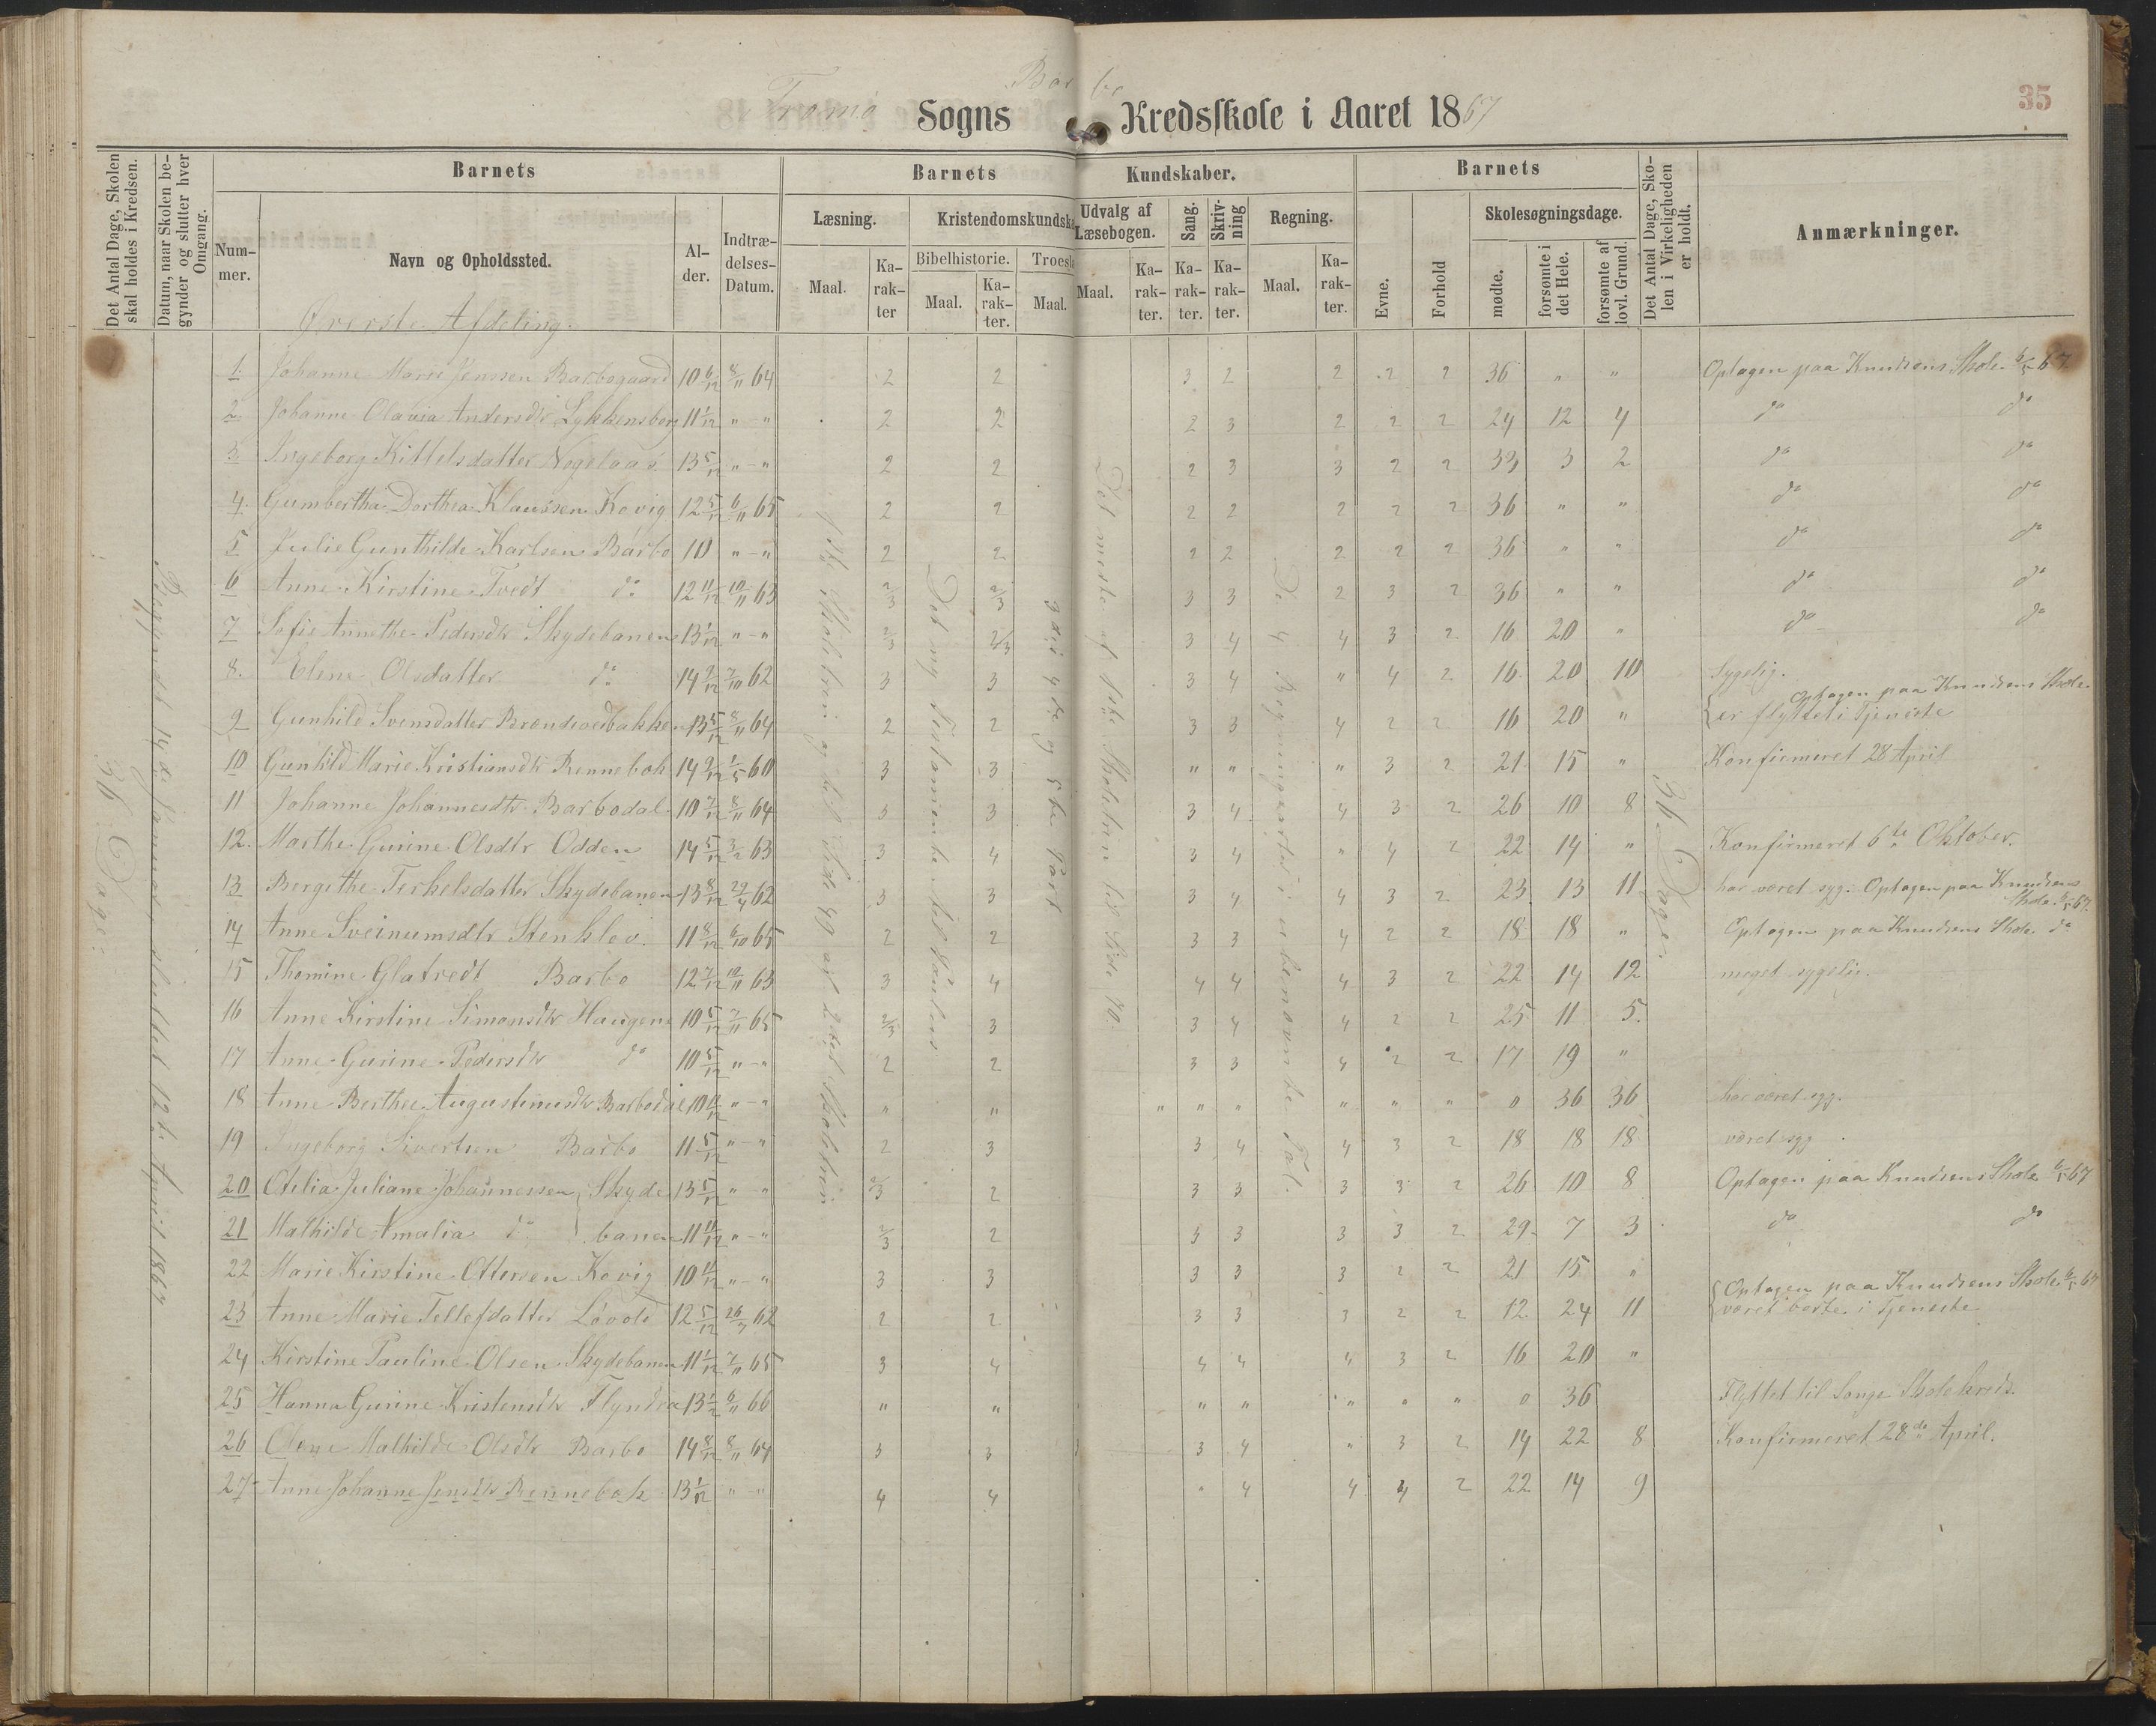 Barbo
Tromø Sogns Kredsskole i Aaret 1867
35
Det Antal Dage, Skolen skal holdes i Kredsen.
Datum, naar Skolen begynder og slutter hver Omgang.
Barnets
Barnets Kundskaber.
Barnets
Det Antal Dage, Skolen i Virkeligheden er holdt.
Anmærkninger.
Nummer.
Navn og Opholdssted.
Alder.
Indtrædelses-Datum.
Læsning.
Kristendomskundska
Udvalg af Læsebogen.
Sang.
Skrivning
Regning.
Evne.
Forhold
Skolesøgningsdage.
Maal.
Karakter
Bibelhistorie.
Troesl
Maal.
Karakter.
Maal.
Maal.
Karakter.
Karakter.
Karakter.
Maal.
Karakter.
mødte.
forsømte i det Hele.
forsømte af lovl. Grund.
Øverste Afdeling.
36 Dage.
Begyndt 14de Januar, sluttet 12te April 1867
Det ny Testamente til Paulus
3die 4de og 5te Part
Det meste af 1ste Skoletrin til Side 70.
De 4 Regningsarter i ubenævnte Tal.
36 Dage.
1. Johanne Marie Jenssen Barbogaard 10 6/12 8/11 64 2 2 3 2 2 2 2 36 " " Optagen paa Knudsens Skole 6/5 67
2 Johanne Olavia Andersdtr Lykkensborg 11 1/12 "-" 2 2 2 3 2 2 2 24 12 4 do do
3 Ingeborg Kittelsdatter 13 5/12 "-" 2 2 2 3 3 2 2 33 3 2 do do
4. Gumbertha Dorthea Klaussen Kovig 12 5/12 6/11 65 2 2 2 2 2 2 2 36 " " do do
5 Julie Gunthilde Karlsen Barbo 10 "-" 2 2 2 2 2 2 2 36 " " do do
6 Anne Kirstine Tvedt do 12 11/12 10/11 63 2/3 2/3 3 3 2 3 2 36 " " do do
7 Sofie Annethe Pedersdtr Skydebanen 13 1/12 "-" 2/3 2/3 3 4 4 3 2 16 20 " do do
8. Elene Olsdatter do 14 2/12 7/10 62 3 3 3 4 " 4 2 16 20 10 Sygelig.
9 Gunhild Svensdatter Brændevedbakken 13 5/12 8/11 64 2 2 3 3 4 2 2 16 20 " { Optagen paa Knudsens Skole
er flyttet i Tjeneste
10 Gunhild Marie Kristiansdtr Rennebok 14 2/12 1/5 60 3 3 " " " 3 2 21 15 " Konfirmeret 28 April
11 Johanne Johannesdtr Barbodal 10 7/12 8/11 64 3 3 3 4 4 3 2 26 10 8
12. Marthe Gurine Olsdtr Odden 14 5/12 3/2 63 3 4 3 4 " 4 2 22 14 " Konfirmeret 6te Oktober.
13 Bergithe Terkelsdatter Skydebanen 13 8/12 29/4 62 3 3 3 4 4 3 2 23 13 11 har været syg. Optagen paa Knudsens Skole 6/5 67.
14 Anne Sveinumsdtr Stenklev. 11 8/12 6/10 65 2 2 3 3 4 2 2 18 18 " Optagen paa Knudsens Skole do
15 Thomine Glatvedt Barbo 12 7/12 10/11 63 3 4 4 4 4 3 2 22 14 12 meget sygelig.
16 Anne Kirstine Simonsdtr Haugene 10 5/12 7/11 65 2/3 3 3 4 4 2 2 25 11 5.
17 Anne Gurine Pedersdtr do 10 5/12 "-" 2 2 3 3 4 2 2 17 19 "
18 Anne Berthee Augustinusdtr Barbodal 10 11/12 "-" " " " " " " " " 0 36 36 har været syg.
19 Ingeborg Sivertsen Barbo 11 5/12 "-" 2 3 3 4 4 3 2 18 18 18 været syg.
20 Otilia Juliane Johannessen } Skyde 13 5/12 " " 2/3 2 3 3 3 3 2 26 10 8 Optagen paa Knudsens Skole 6/5 67
21 Mathilde Amalia do } banen 11 11/12 "-" 2/3 2 3 3 3 3 2 29 7 3 do do
22 Marie Kirstine Ottersen Kovig 10 11/12 "-" 3 3 3 3 3 2 2 21 15 "
23 Anne Marie Tellefdatter 12 5/12 26/7 62 2 2 3 3 3 2 2 12 24 11 { Optagen paa Knudsens Skole 6/5 67
været borte i Tjeneste
24 Kirstine Pauline Olsen Skydebanen 11 1/12 7/11 65 3 4 4 4 4 3 2 16 20 "
25 Hanna Gurine Kristensdtr Flyndra 13 1/2 6/11 66 " " " " " " " 0 36 Flyttet til Songe Skolekreds.
26 Olene Mathilde Olsdtr Barbo 14 8/12 8/11 64 3 3 3 4 " 3 2 14 22 8 Konfirmeret 28de April.
27 Anne Johanne Jensdtr Rennebok 13 1/12 "-" 4 4 " 4 4 4 2 22 14 9